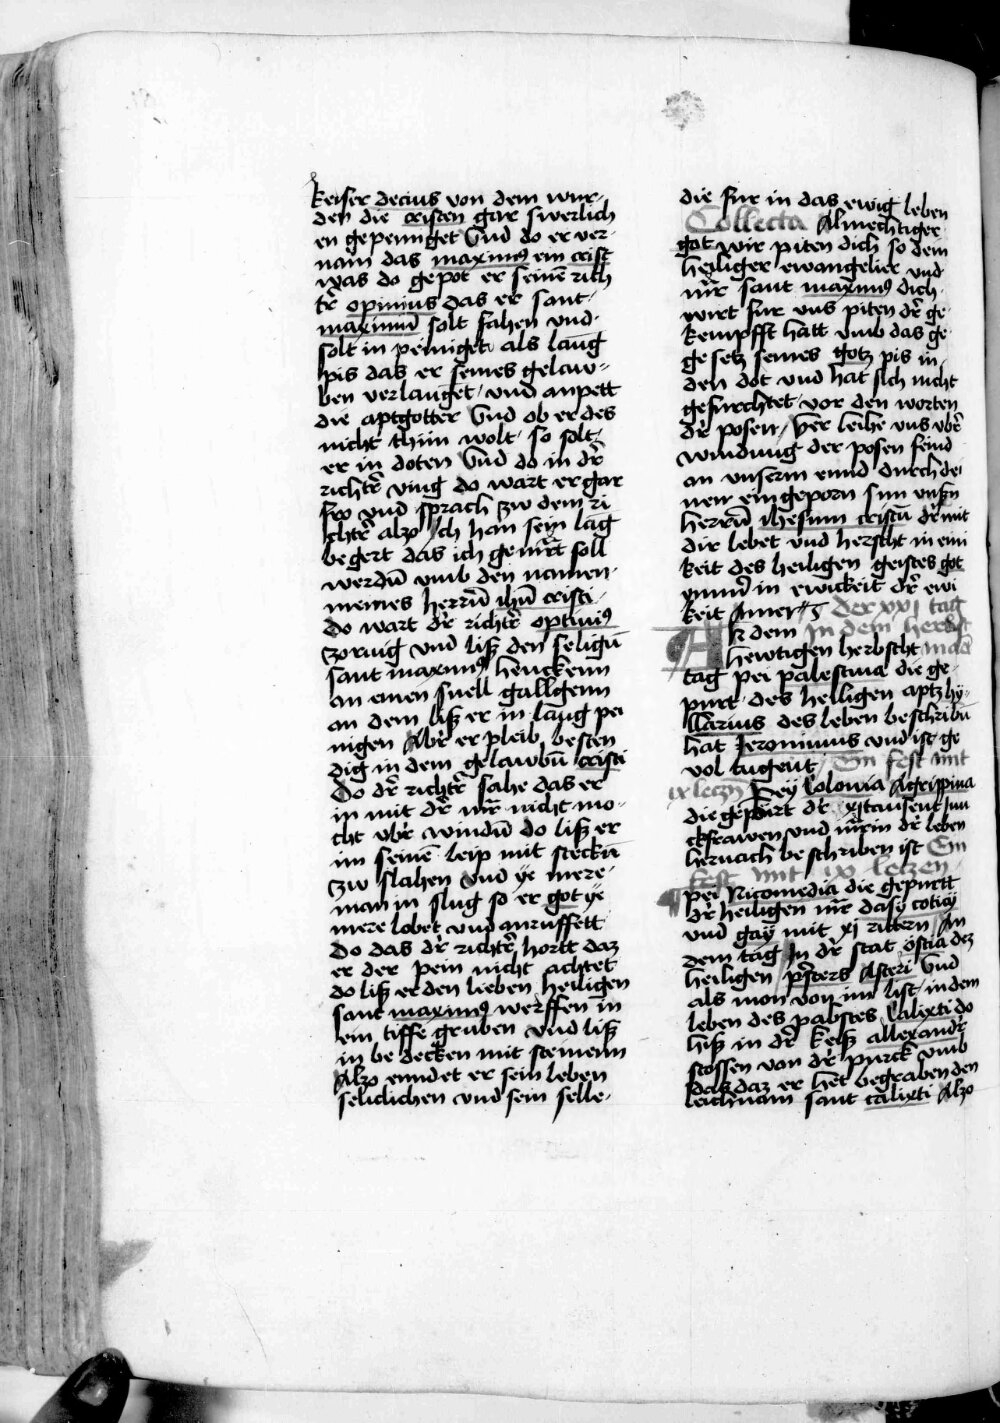 keiser decius von dem wur-
den die cristen gar swerlich
en gepeiniget Vnd do er ver-
nam das maximus ein crist
was do gepot er seinē rich
tr̄ opinius das er sant
maximū solt fahen vnd
solt in peiniget als lang
pis das er seines gelaw-
ben verlauget vnd anpett
die aptgotter Vnd ob er des
nicht thun wolt so solt
er in doten Vnd do in dr̄
richtr̄ ving do wart er gar
fro vnd sprach zw dem ri
chtr̄ alzo Jch han sein lag
begert das ich gemr̄t soll
werdn̄ vmb den namen
meines herrn̄ ihū cristi
do wart dr̄ richtr̄ optimus
zornig vnd liß den selign̄
sant maximus henckenn
an einen snell gallgenn
an dem liß er in lang pei
nigen Abr̄ er pleib besten
dig in dem gelawbn̄ cristi
Do dr̄ richtr̄ sahe das er
in mit dr̄ mr̄ nicht mo-
cht vbr̄ windn̄ do liß er
im seinē leip mit steckn̄
zw slahen Vnd ye mere
man in slug so er got ye
mere lobet vnd anruffett
Do das dr̄ richtr̄ hortt daz
er der pein nicht achtet
do liß er den lieben heiligen
sant maximus werffen in
ein tiffe gruben vnd liß
in be decken mit steinenn
Alzo enndet er sein leben
seliclichen vnd sein selle
die fur in das ewig leben
Collecta Almechtiger
got wir piten dich so dein
heiliger ewangelier vnd
mr̄r sant maximus dich
wirt fur vns piten dr̄ ge
kempfft hatt vmb das ge
ge setz seines gotz pis in
den dot vnd hat sich nicht
gefurchtet vor den worten
dr̄ posen / Ver leihe vns vbr̄
windung der posen feind
an vnserm ennd durch dei
nen eingeporn sun vnßn̄
herrn̄ ihesum cristū dr̄ mit
dir lebet vnd herscht in eini
keit des heiligen geistes got
ymmr̄ in ewickeit dr̄ ewi
keit Amen der xxj tag
Ak dem in dem herbst
hewtigen herbscht mād
tag pei palestina die ge-
purt des heiligen aptz hy-
llarius des leben beschribn̄
hat Jeronimus vnd ist ge
vol tugent Ein fest mit
ix leczn̄ Pey Colonia Agrippina
die gepurt dr̄ xj tausent Jun
ckfrawen vnd mr̄rin dr̄ leben
hernach be schriben ist Ein
fest mit ix leczen
pei Nicomedia die gepurtt
dr̄ heiligen mr̄r dasy coticy
vnd gay mit xj rittern An
dem tag Jn dr̄ stat ostia dez
heiligen pr̄sters Asteri Vnd
als mon von im list in dem
leben des pabstes Calixti do
hiß in dr̄ keiß allexandr̄
stossen von dr̄ purck vmb
das daz er het begraben den
leichnam sant calixti Alzo